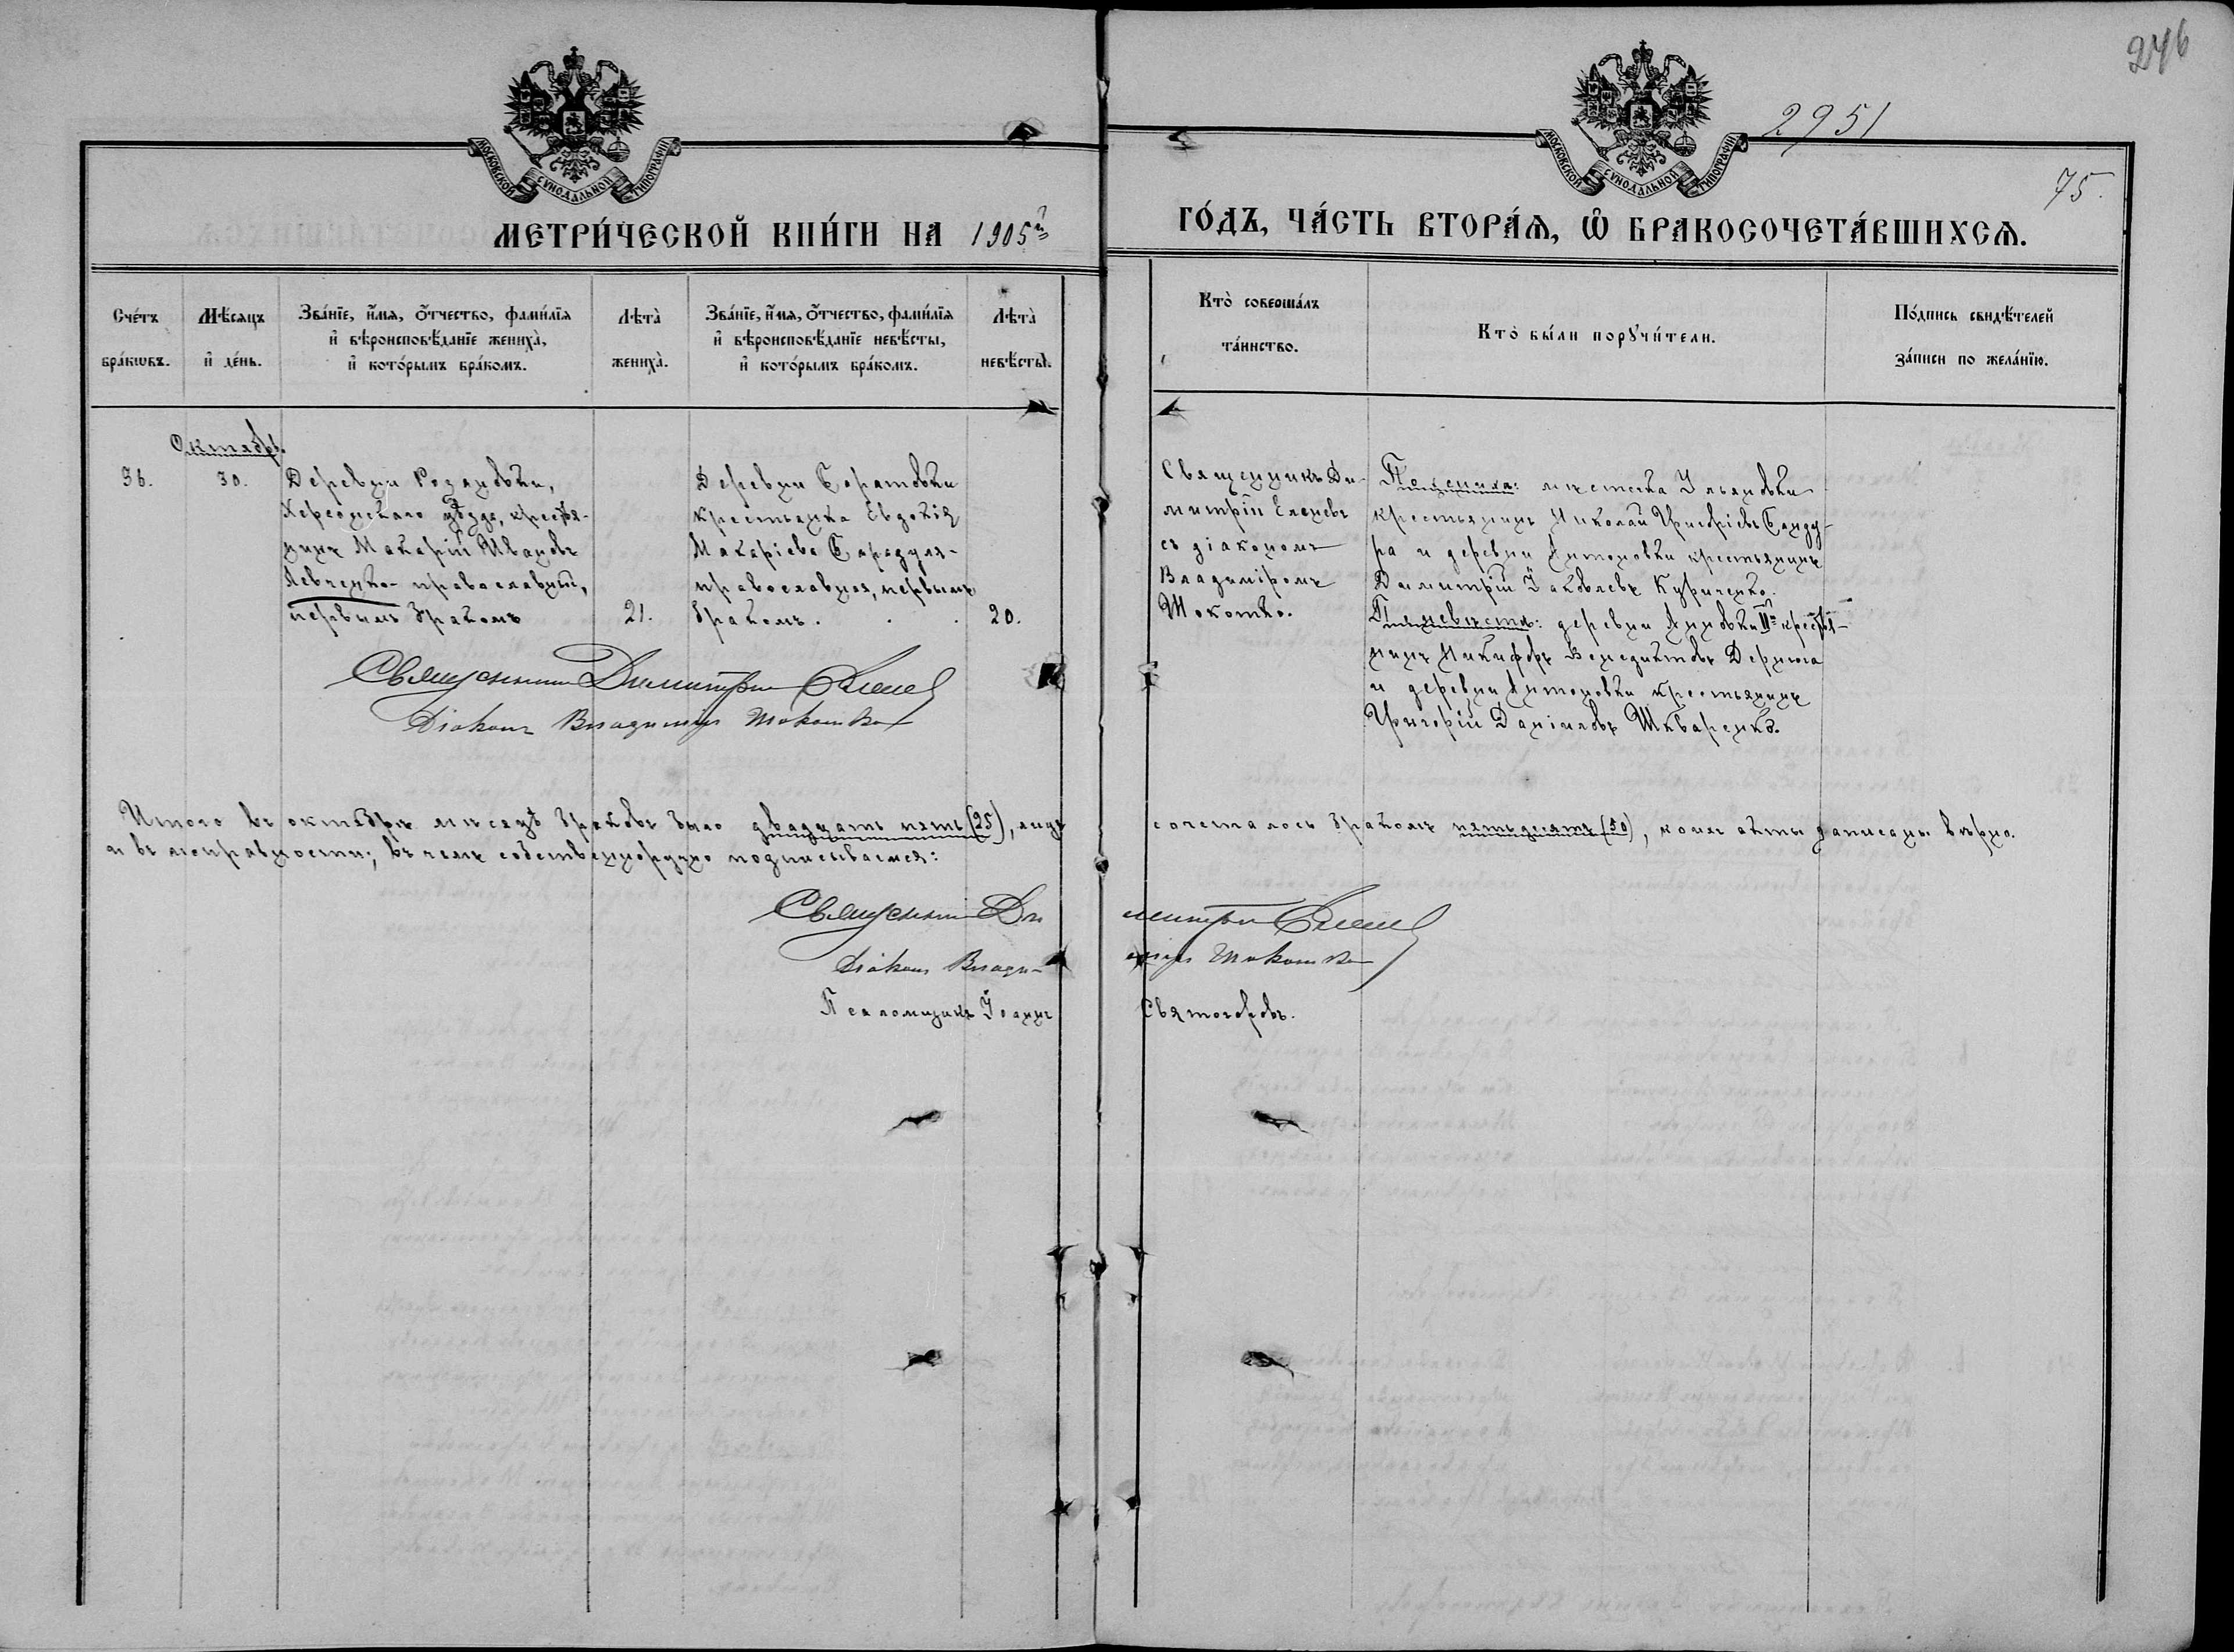 246
2951
75.
МОСКОВСКОЙ СѴНОДАЛЬНОЙ ТИПОГРАФІИ
МОСКОВСКОЙ СѴНОДАЛЬНОЙ ТИПОГРАФІИ
МЕТРИ́ЧЕСКОЙ КНИ́ГИ НА 1905й
ГО́ДЪ, ЧА́СТЬ ВТОРА́Ѧ, Ѽ БРАКОСОЧЕТА́ВШИХСѦ.
Сче́тъ
бра́кѡвъ.
Мѣ́сяцъ
и҆ де́нь.
Зва́нїе, и҆́мѧ, ѻ҆́тчество, фами́лїѧ
и҆ вѣроисповѣ́данїе жениха̀,
и҆ кото́рымъ бра́комъ.
Лѣта̀
жениха̀.
Зва́нїе, и҆́мѧ, ѻ҆́тчество, фами́лїѧ
и҆ вѣроисповѣ́данїе невѣ́сты,
и҆ кото́рымъ бра́комъ.
Лѣта̀
невѣ́сты.
Кто̀ соверша́лъ
та́инство.
Кто̀ бы́ли порꙋчи́тели.
По́дпись свидѣ́телей
за́писи по жела́нїю.
Октябрь.
36.
30.
Деревни Розановки,
Херсонскаго уѣзда, крестья-
нинъ Макарій Ивановъ
Левченко - православный,
первымъ бракомъ
21.
Деревни
крестьянка Евдокія
Макаріева
православная, первымъ
бракомъ.
20.
Священникъ Ди-
митрій Еленевъ
съ діакономъ
Владиміромъ
Шокотко.
По женихѣ: мѣстечка Ульяновки
крестьянинъ Николай Банду-
ра и деревни Антоновки крестьянинъ
Димитрій Іаковлевъ Куриченко.
По невѣстѣ: деревни Анновки IIй крестья-
нинъ Никифоръ Венедиктовъ Дерюга
и деревни Антоновки крестьянинъ
Григорій Даніиловъ Шкваренко.
Священникъ Димитрій Еленевъ
Діаконъ Владиміръ Шокотко
Итого въ октябрѣ мѣсяцѣ браковъ было двадцать пять (25), лицъ сочеталось бракомъ пятьдесятъ (50), коихъ акты записаны вѣрно.
и въ исправности; въ чемъ собственноручно подписываемся:
Священникъ Димитрій Еленевъ
Діаконъ Владиміръ Шокотко
Псаломщикъ Іоаннъ Святогоровъ.